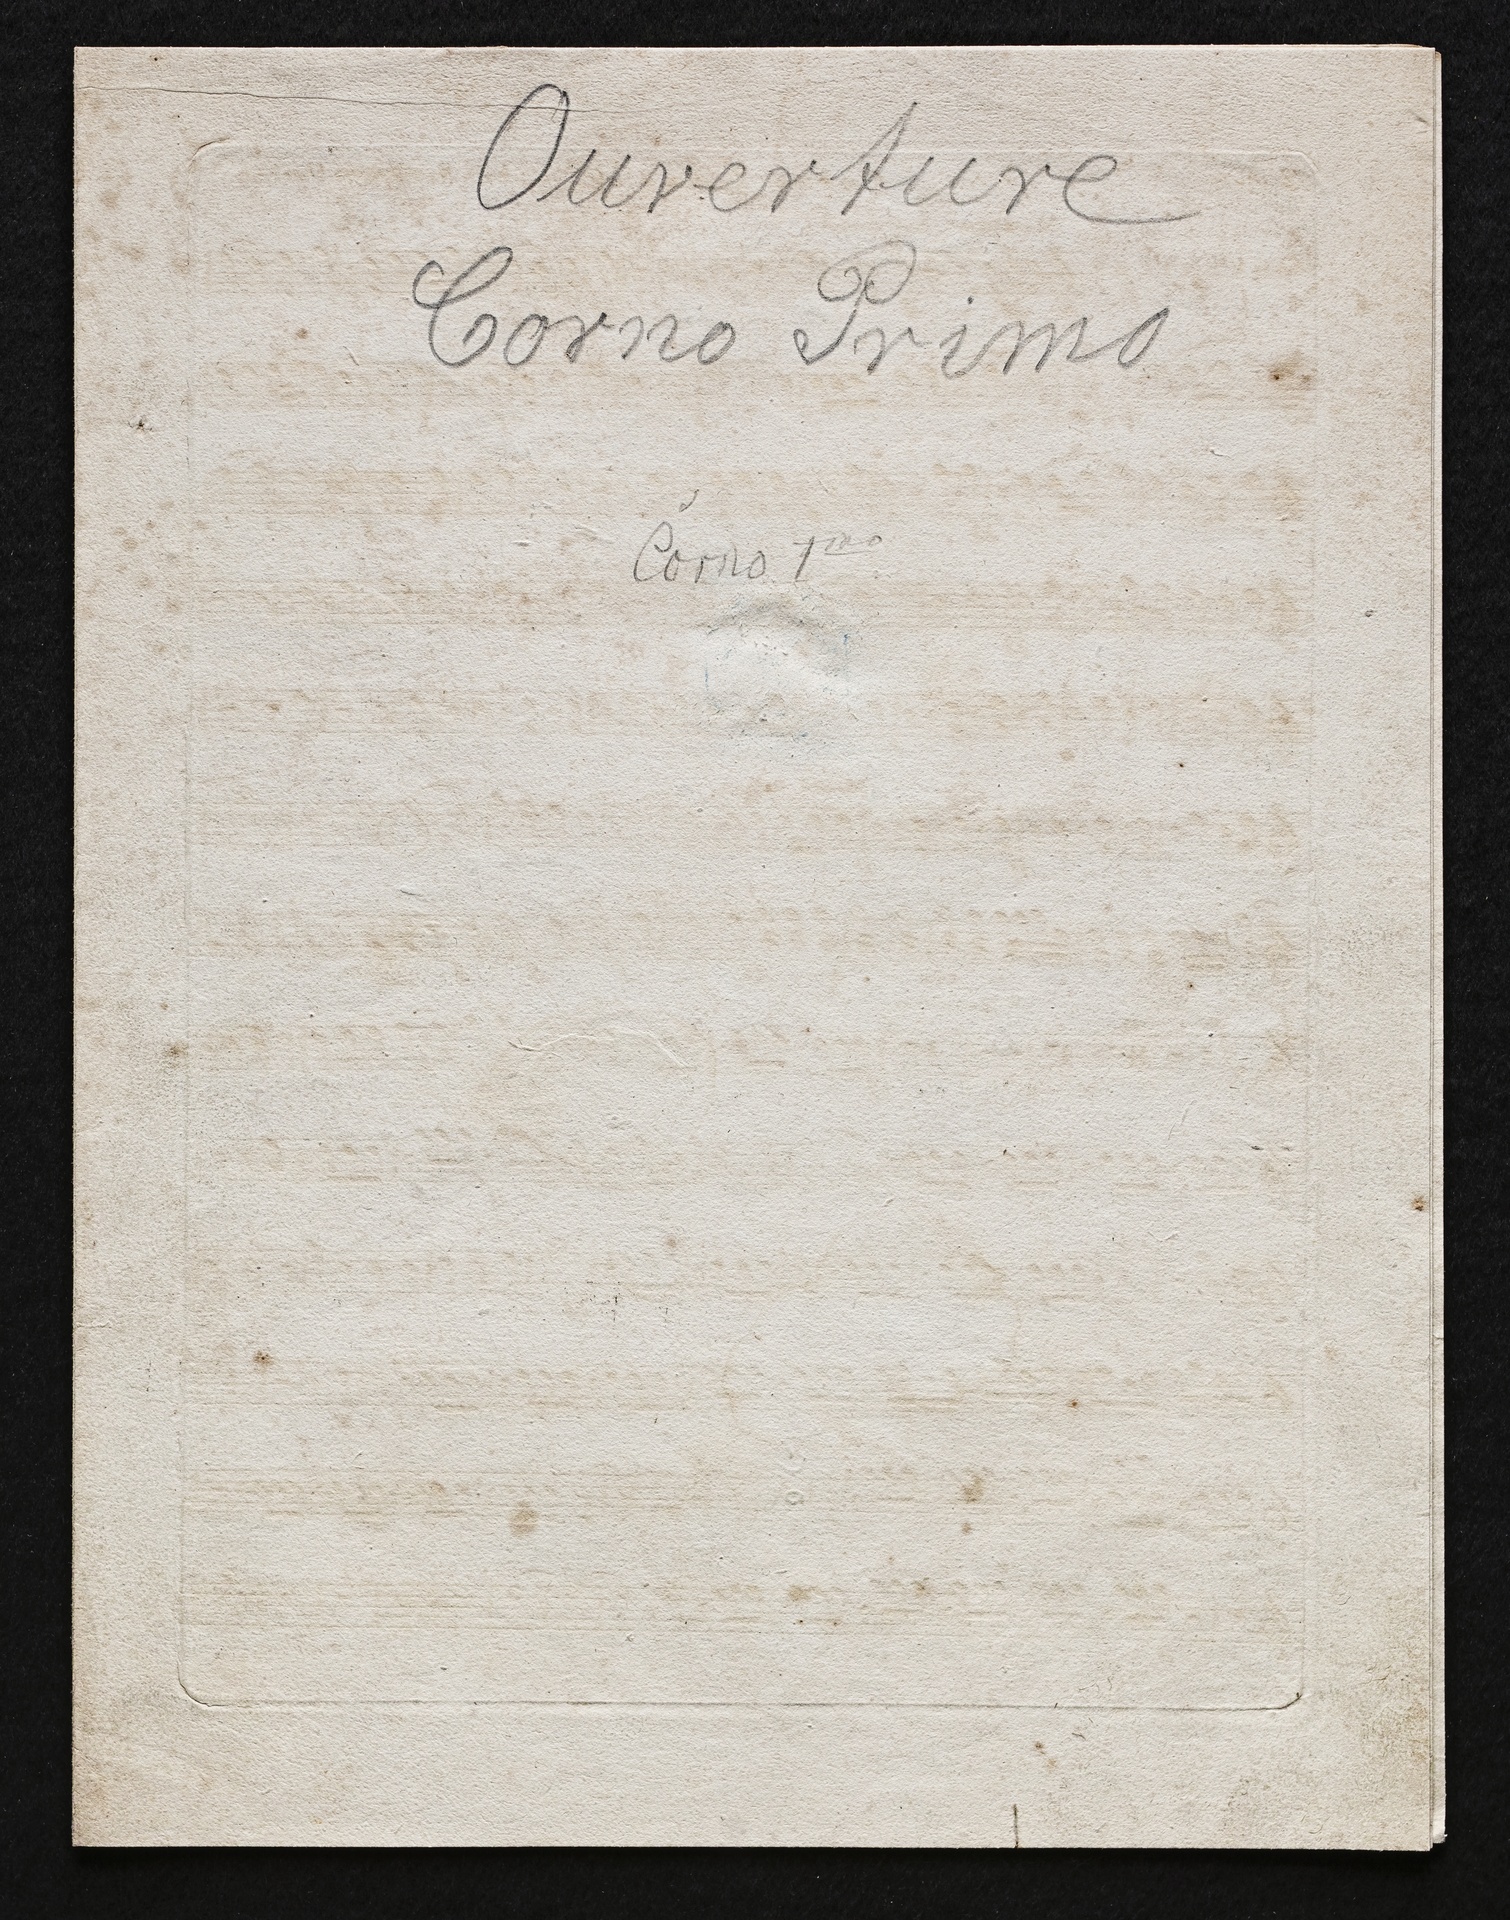 Ouverture
Corno Primo
Corno 1mo